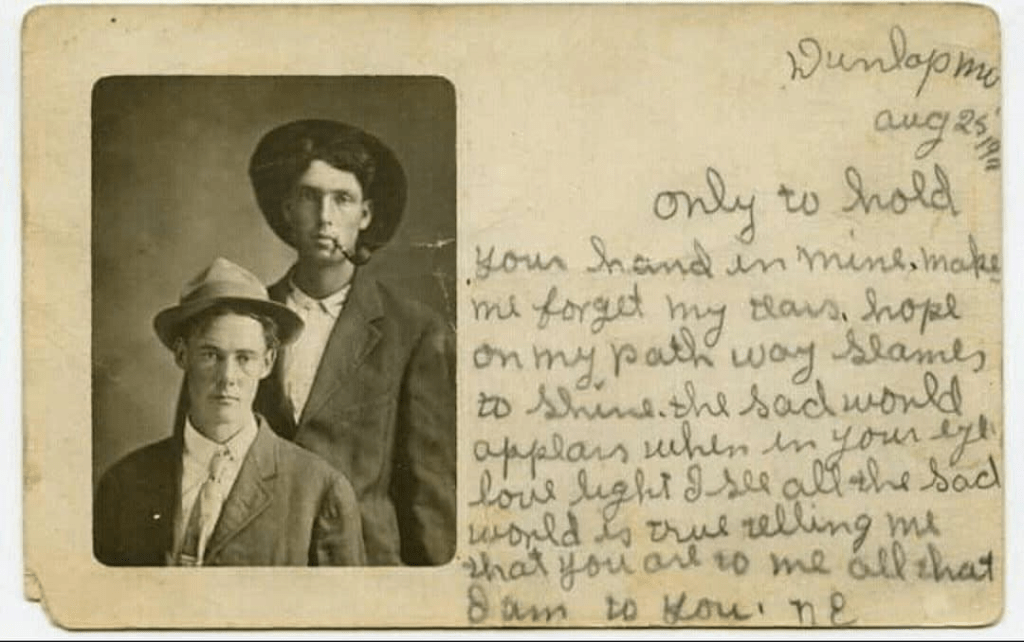 Dunlap Mo
aug 25 1911
only to hold
your hand in mine. make
me forget my tears. hope
on my path way seames
to shine. the sad world
applars when in your eye
love light I see all the sad
world is true telling me
that you are to me all that
I am to you. n E